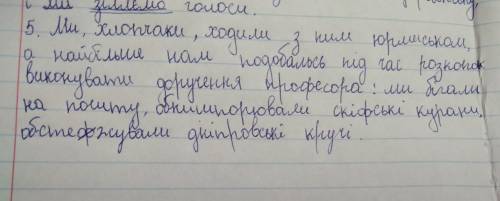 і ми зіллємо голоси.
5. Ми, хлопчаки, ходили з ним юрмиськом,
а найбільше нам подобалось під час розкопок
виконувати доручення професора: ми бігали
на пошту, обнишпорювали скіфські кургани,
обстежжували дніпровські кручі.